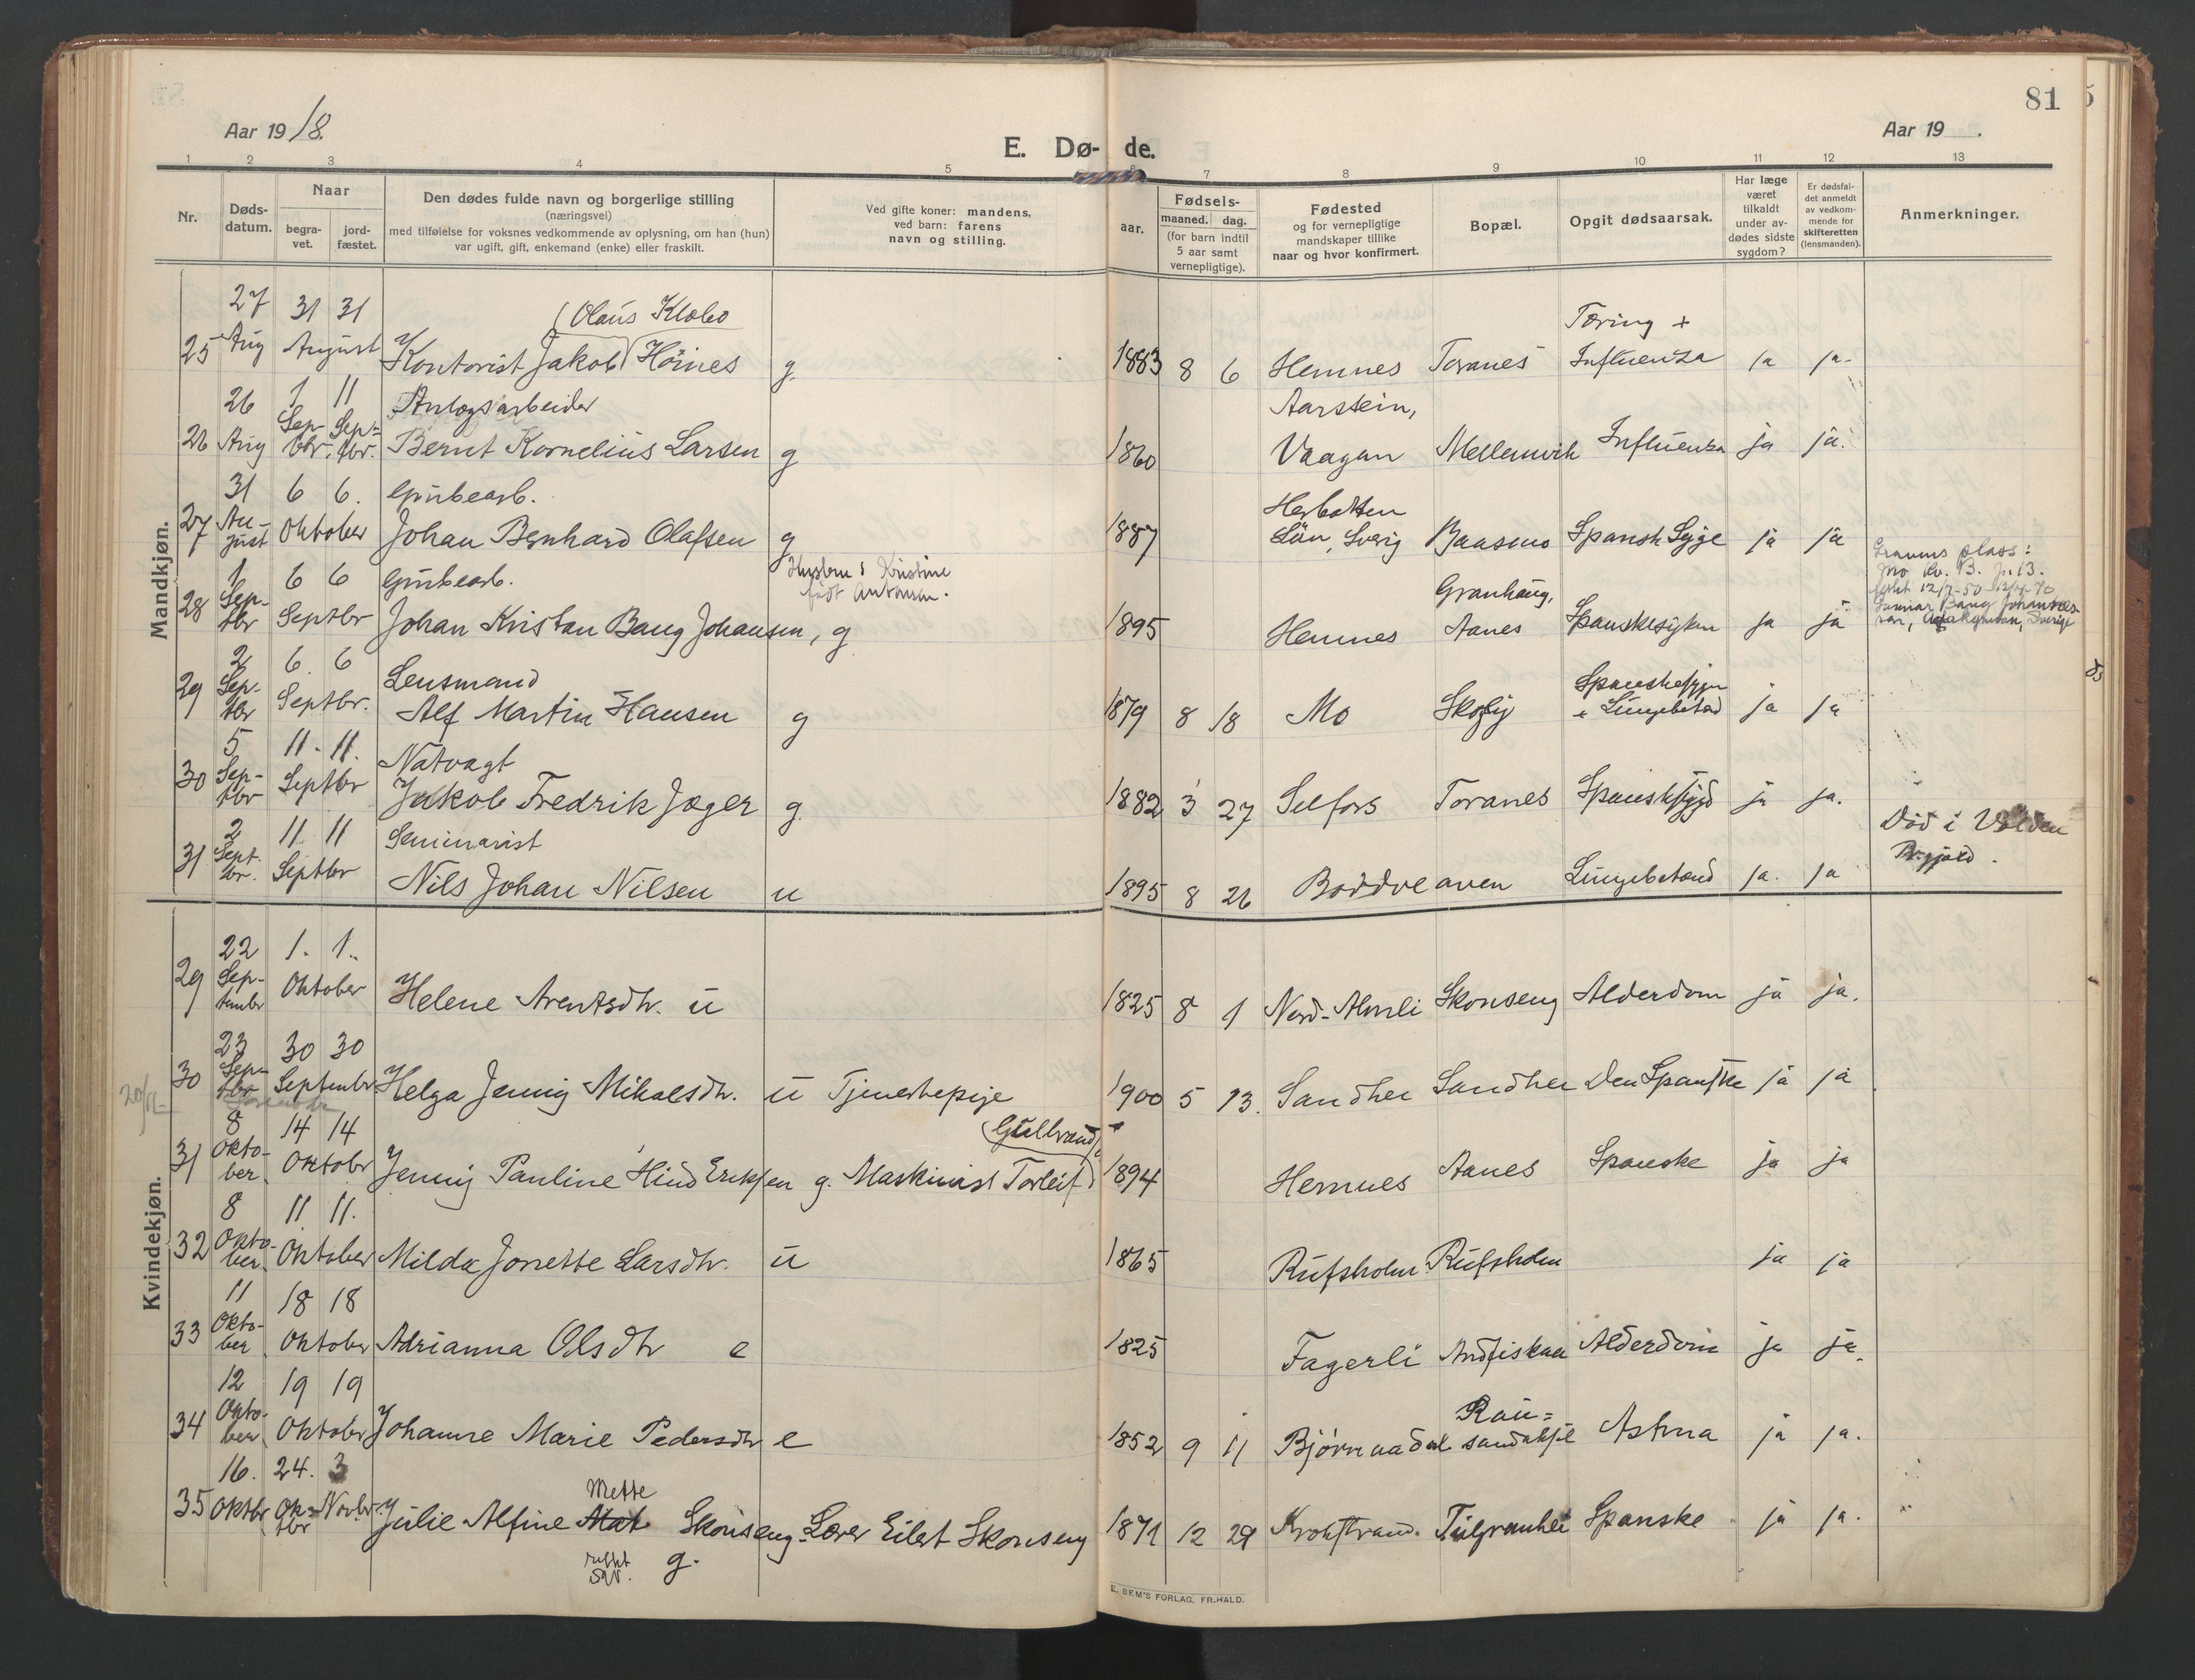 81
Aar 1918.
Aar 19 .
E. Dø- de.
1 2 3 4 5 6 7 8 9 10 11 12 13
Nr.
Døds-
datum.
Naar
begra-
vet.
jord-
fæstet.
Den dødes fulde navn og borgerlige stilling
(næringsvei)
med tilføielse for voksnes vedkommende av oplysning, om han (hun)
var ugift, gift, enkemand (enke) eller fraskilt.
Ved gifte koner: mandens,
ved barn: farens
navn og stilling.
aar.
Fødsels-
maaned. dag.
(for barn indtil
5 aar samt
vernepligtige).
Fødested
og for vernepligtige
mandskaper tillike
naar og hvor konfirmert.
Bopæl.
Opgit dødsaarsak.
Har læge
været
tilkaldt
under av-
dødes sidste
sygdom?
Er dødsfal-
det anmeldt
av vedkom-
mende for
skifteretten
(lensmanden).
Anmerkninger.
Mandkjøn.
27 31 31 (Olaus Klabo Tæring +
25 Aug August Kontorist Jakob Høines g. 1883 8 6 Hemnes Toranes Influenza ja ja.
26 1 11 Anlægsarbeider Aarstein,
26 Aug Sep-tbr. Sep-tbr. Bernt Kornelius Larsen g 1860 Vaagan Mellemvik Influenza ja ja.
31 6 6. Grubearb.
27 Au-gust Oktober Johan Bernhard Olafsen g 1887 Län, Sverig Baasmo Spansk Syge ja ja
1 6 6 Grubearb. Hustru: Kristine født Antonsen. Granhaug,
28 Sep-tbr Septbr Johan Kristan Bang Johansen, g 1895 Hemnes Aanes Spanskesyken ja ja
Gravens plass:
Mo
2 6. 6 Lensmand
29 Sep-tbr Septbr. Alf Martin Hansen g 1879 8 18 Mo ja ja
5 11. 11. Natvagt
30 Sep-tbr Septbr Jakob Fredrik Jæger g. 1882 3 27 Selfors Toranes ja ja.
2 11. 11 Seminarist
31 Sept.br. Septbr Nils Johan Nilsen u 1895 8 26 Lungebetænd ja. ja
Død i Volden
Kvindekjøn.
22 1. 1.
29 Sep-tember Oktober Helene Arentsdtr. u 1825 8 1 Nord-Almli Skonseng Alderdom ja ja.
23 30 30
30 Sep-tbr Septembr Helga Jenny Mikalsdtr. u Tjenestepige 1900 5 13. Sandhei Sandhei Den Spanske ja ja
8 14 14 (Gulbrand)
31 Okto-ber Oktobr Jenny Pauline Hind Eriksen g. Maskinist Torleif 1894 Hemnes Aanes Spanske ja ja
8 11 11.
32 Okto-ber. Oktober Milda Jonette Larsdtr. u 1865 Rufsholm Rufsholm ja ja
11 18 18
33 Okto-ber Oktober Adrianna Olsdtr e 1825 Fagerli Andfiskaa Alderdom ja ja.
12 19 19
34 Okto-ber Oktober Johanne Marie Pedersdtr e 1852 9 11 Bjørnaadal Astma ja ja.
16. 24. 3 Mette
35 Oktbr Ok-tbr Novbr. Julie Alfine Skonseng Lærer Eilert Skonseng 1871 12 29 Krokstrand. Spanske ja ja.
rettet
g.
E. SEM'S FORLAG, FR.HALD.